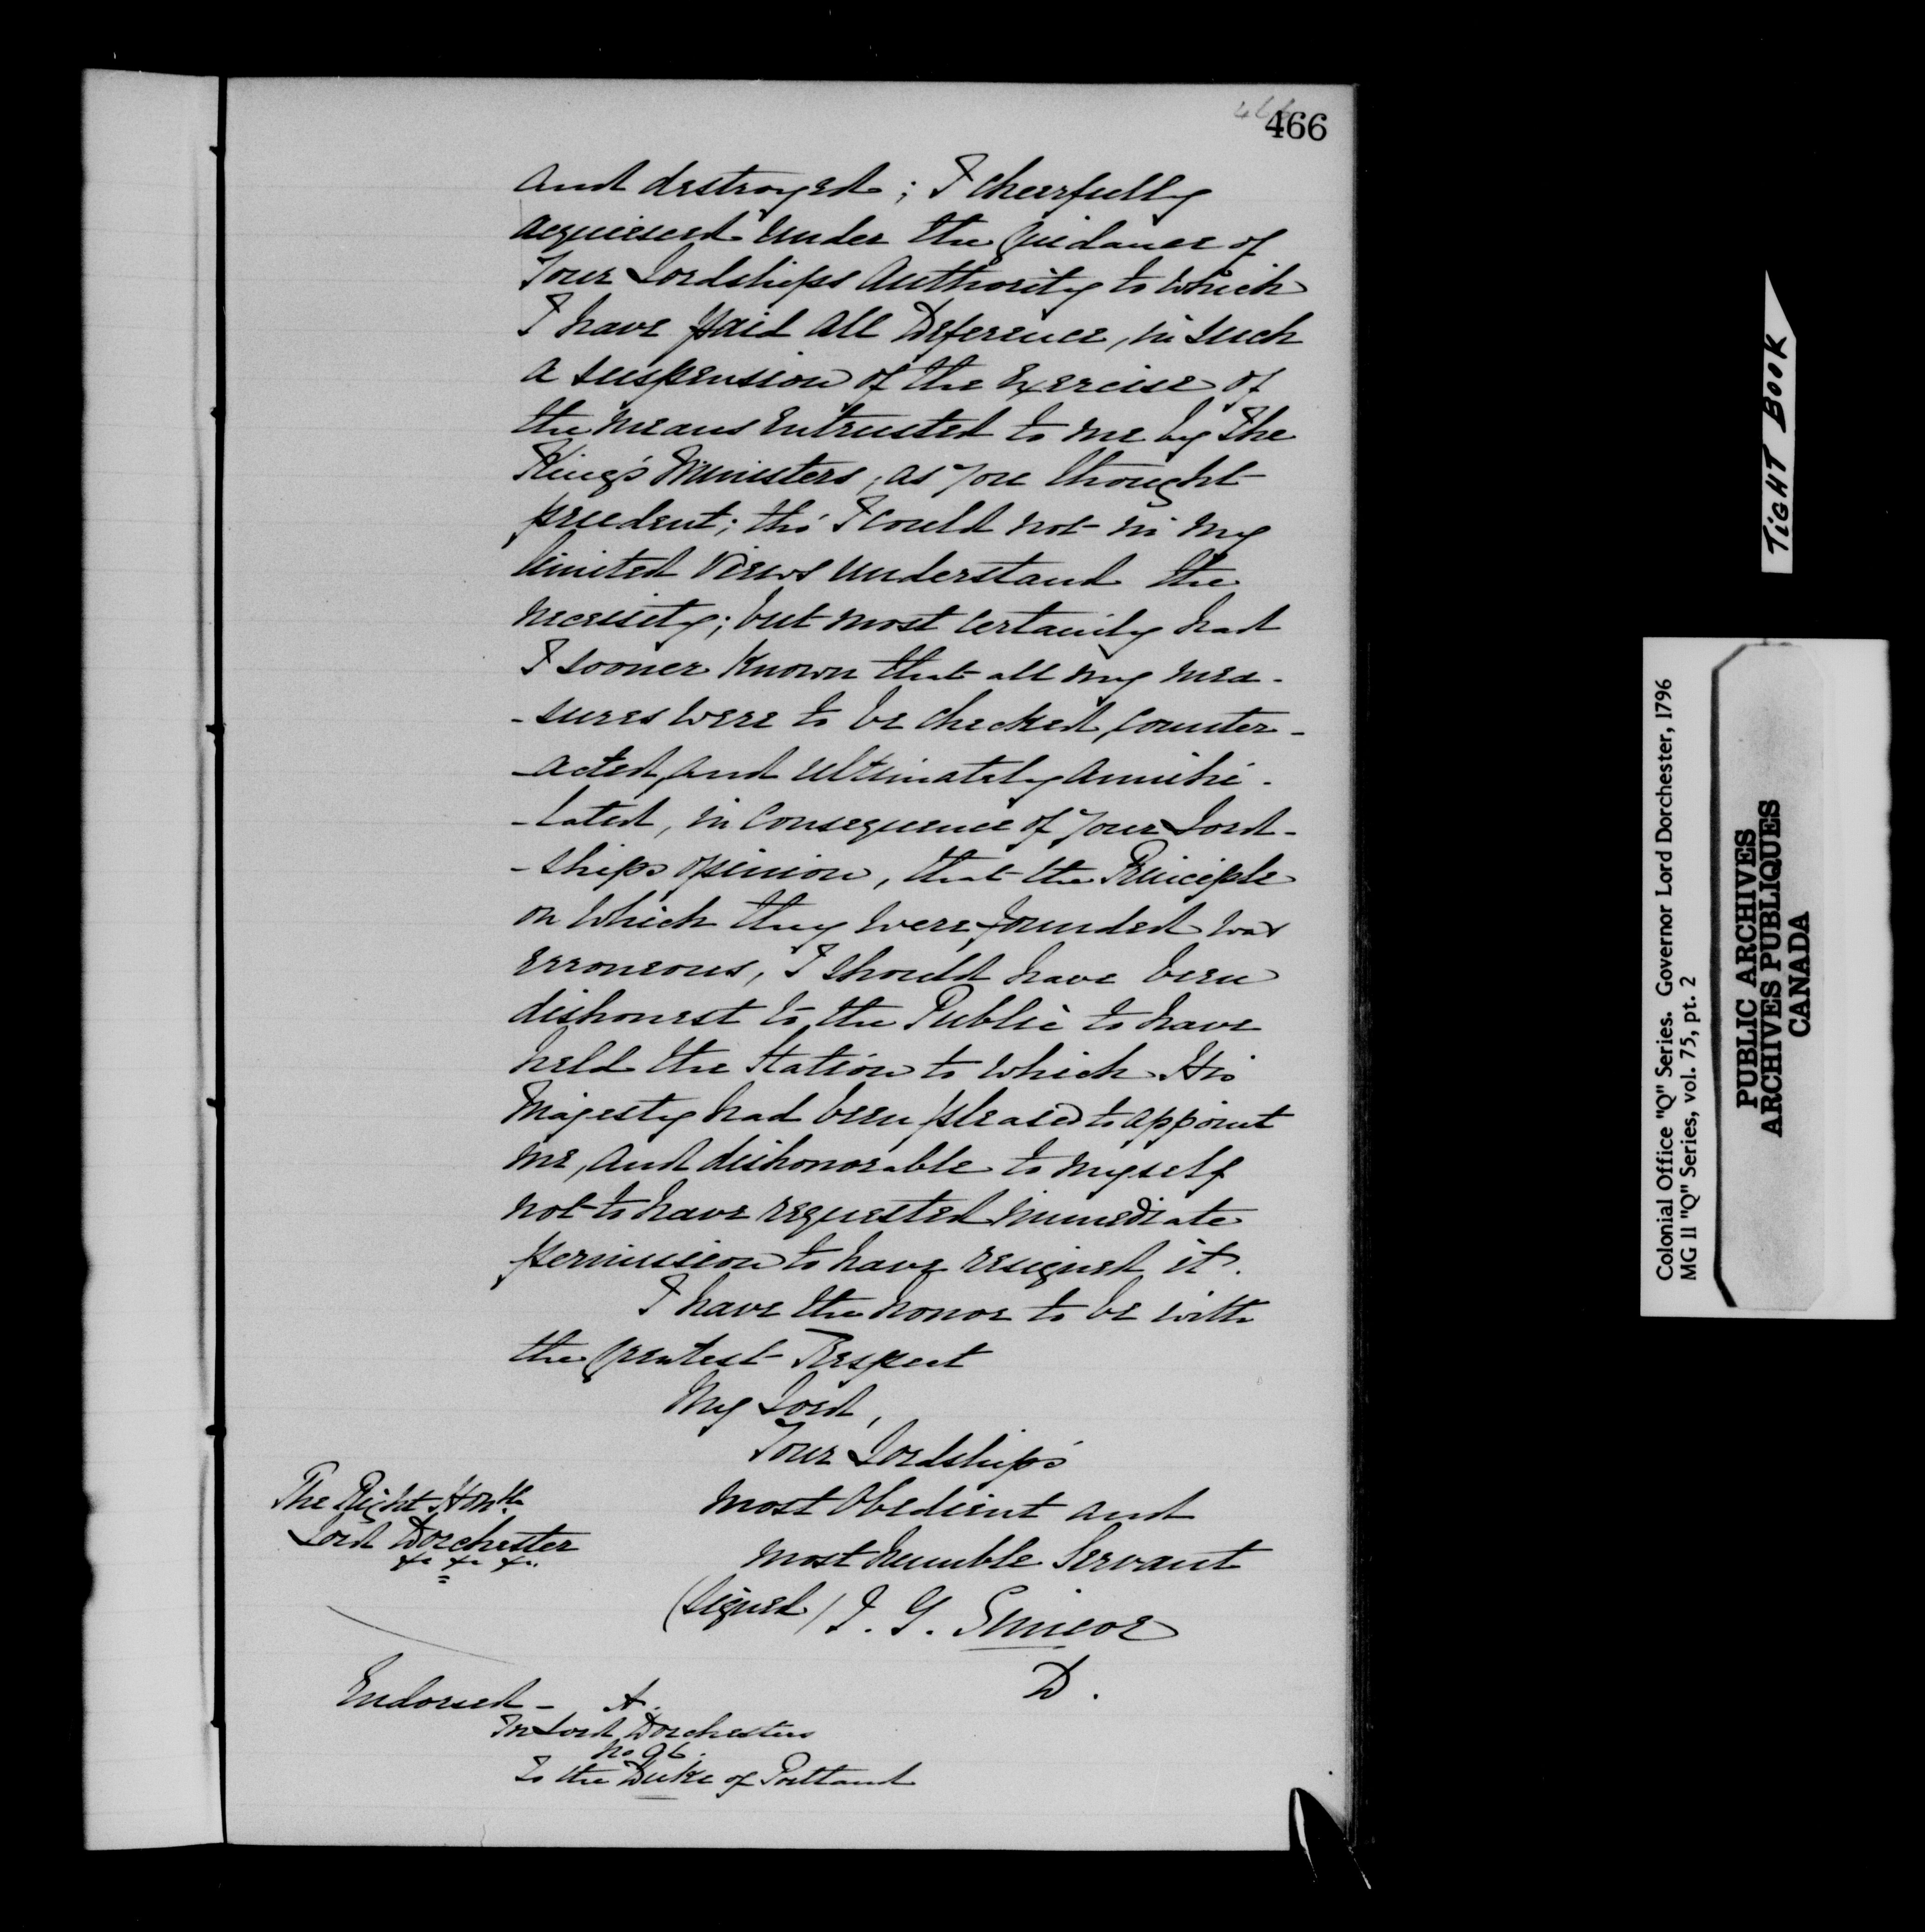 466
466
and destroyed; I cheerfully
acquiesced under the Guidance of
Your Lordships Authority to which
I have paid all Deference, in such
a suspension of the Exercise of
the means entrusted to me by the
King's Ministers, as you thought
prudent; tho' I could not in my
limited views understand the
necessity; but most certainly had
I sooner known that all my mea-
-sures were to be checked, counter-
-acted, and ultimately annihi-
-lated, in consequence of your Lord-
-ships opinion, that the Principle
on which they were founded was
erroneous, I should have been
dishonest to the Public to have
held the Station to which His
Majesty had been pleased to appoint
me, and dishonorable to myself
not to have requested immediate
permission to have resigned it.
I have the honor to be with
the greatest Respect
My Lord,
Your Lordship's
most obedient and
most humble Servant
(signed) J. G. Simcoe
The Right Honble
Lord Dorchester
&c &c &c.
D.
Endorsed - A.
In Lord Dorchesters
No 96.
To the Duke of Portland
TIGHT BOOK
Colonial Office "Q" Series. Governor Lord Dorchester, 1796
MG 11 "Q" Series, vol. 75, pt. 2
PUBLIC ARCHIVES
ARCHIVES PUBLIQUES
CANADA